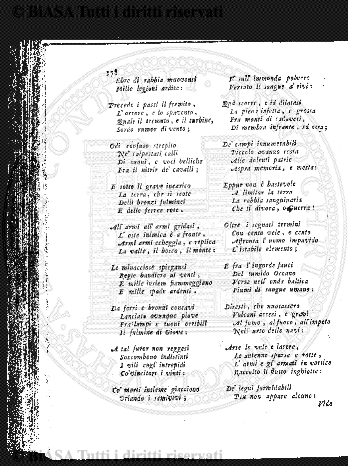 © BIASA Tutti i diritti riservati
338
Ebre di rabbia muovonsi
Mille legioni ardite:
Precede i passi il fremito,
L'orrore, e lo spavento,
Quale il tremuoto, e il turbine,
Sordo rumor di vento;
Odi confuso strepito
Ne' calpestati colli
Di tuoni, e voci belliche
Fra il nitrir de' cavalli;
E sotto il grave incarico
La terra, che si scote
Delli bronzi fulminei
E delle ferree rote.
All'armi all'armi gridasi,
L'oste inimica è a fronte.
Armi armi echeggia, e replica
La valle, il bosco, il monte:
Le minacciose spiegansi
Regie bandiere ai venti,
E mille insiem fiammeggiano
E mille spade ardenti.
Da ferri e bronzi concavi
Lanciata ovunque piove
Fra lampi e tuoni orribili
Il fulmine di Giove:
A tal furor non reggesi
Soccombono indistinti
I vili cogl'intrepidi
Co' vincitori i vinti:
Co' morti insieme giacciono
Urlando i semivivi;
E sull'immonda polvere
Versato il sangue a rivi:
Qua scorre, e si dilatasi
La piena infetta, e grossa
Fra monti di cadaveri,
Di membra infrante, ed ossa;
De' campi innumerabili
Piccolo avanzo resta
Alle dolenti patrie
Aspra memoria, e mesta:
Eppur non è bastevole
A limitar la terra
La rabbia sanguinaria
Che ti divora, o guerra!
Oltre i segnati termini
Con cento vele, e cento
Affronta l'uomo impavido
L'instabile elemento;
E fra l'ingorde fauci
Del tumido Oceano
Versa nell'onde baltica
Fiumi di sangue umano:
Diresti, che nuotassero
Vulcani accesi, e gravi
Al fumo, al fuoco, all'impeto
Nell'urto delle navi:
Arse le vele e lacere,
Le antenne sparse e rotte,
L'armi e gl'armati in vortice
Raccolto il flutto inghiotte:
De' legni formidabili
Più non appare alcuno:
BIASA Tutti i diritti riservati